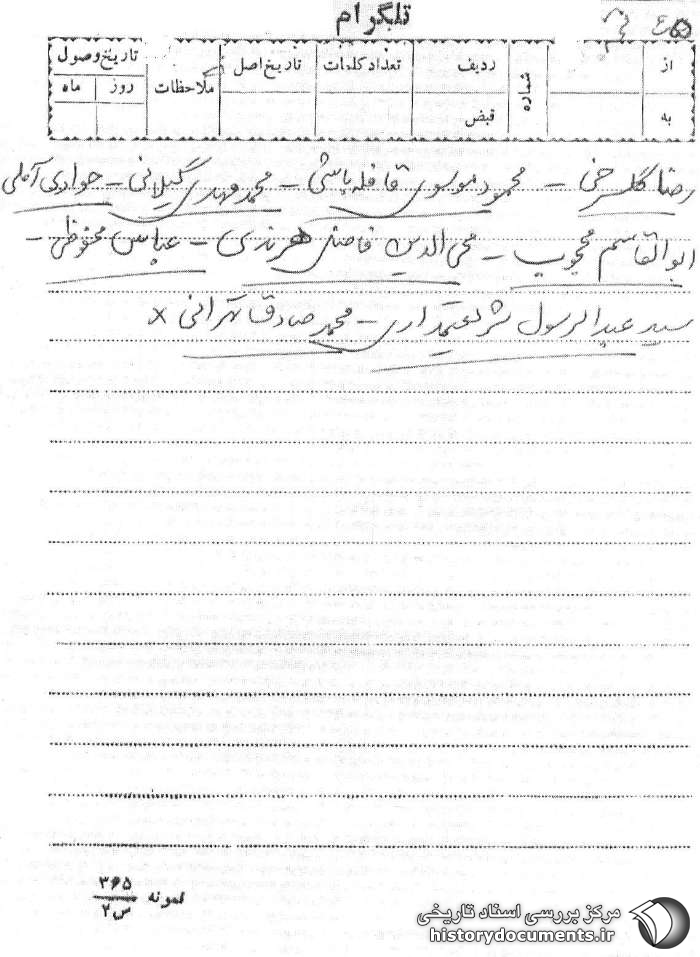 تلگرام
از
به
شماره
ردیف
قبض
تعداد کلمات
تاریخ اصل
ملاحظات
تاریخ وصول
روز
ماه
رضا گلسرخی - محمود موسوی قافله باشی - محمد مهدی گیلانی - جوادی آملی
ابوالقاسم محجوب - محی الدین فاضل هرندی - عباس محفوظی -
سید عبدالرسول شریعتمداری - محمد صادق تهرانی x
نمونه ۳۶۵
س۲
مرکز بررسی اسناد تاریخی
historydocuments.ir